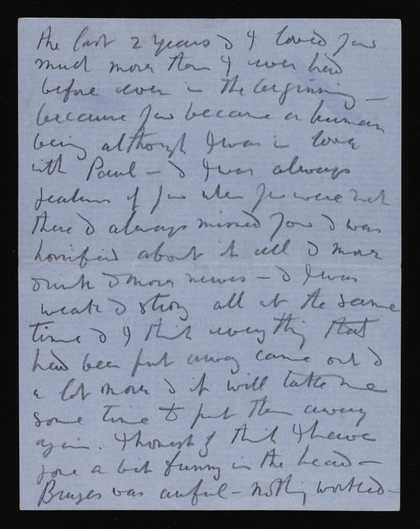 the last 2 years & I loved you
much more than I ever had
before even in the beginning —
because you became a human
being although I was in love
with Paul — & I was always
jealous of you when you were not
there & always missed you & was
horrified about it all & more
drunk & more nerves — & I was
weak & strong all at the same
time & I think everything that
had been put away came out &
a lot more & it will take me
some time to put them away
again. I honestly think I have
gone a bit funny in the head —
Bruges was awful — nothing worked —